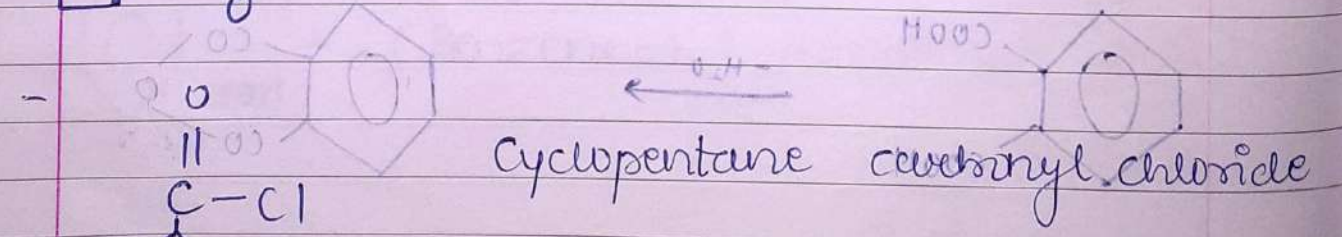 - O
||
C-Cl
Cyclopentane carbonyl chloride